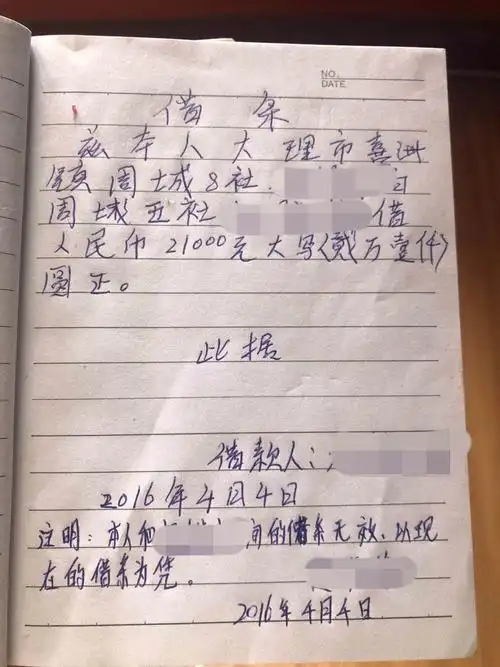 NO.
DATE
借 条
兹本人大理市喜洲
镇周城8社
向
周城五社 借
人民币21000元大写(贰万壹仟)
圆正。
此据
借款人:
2016年4月4日
注明:本人和 间的借条无效,以现
在的借条为凭。
2016年4月4日